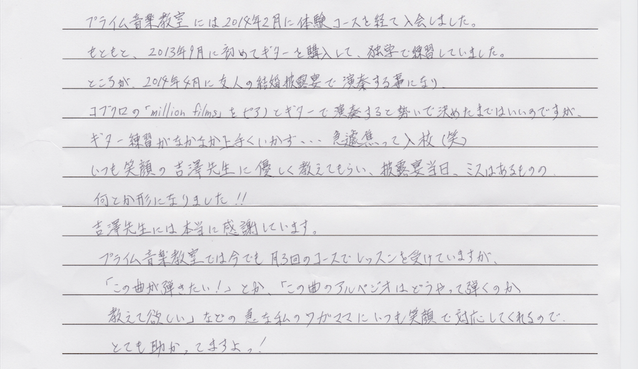 プライム音楽教室には2014年2月に体験コースを経て入会しました。
もともと、2013年9月に初めてギターを購入して、独学で練習していました。
ところが、2014年4月に友人の結婚披露宴で演奏する事になり、
コブクロの「million films」をピアノとギターで演奏すると勢いで決めたまではいいのですが、
ギター練習がなかなか上手くいかず、、、急遽焦って入校(笑)
いつも笑顔の吉澤先生に優しく教えてもらい、披露宴当日、ミスはあるものの、
何とか形になりました!!
吉澤先生には本当に感謝しています。
プライム音楽教室では今でも月3回のコースでレッスンを受けていますが、
「この曲が弾きたい!」とか、「この曲のアルペジオはどうやって弾くのか
教えて欲しい」などの急な私のワガママにいつも笑顔で対応してくれるので、
とても助かってますよっ!